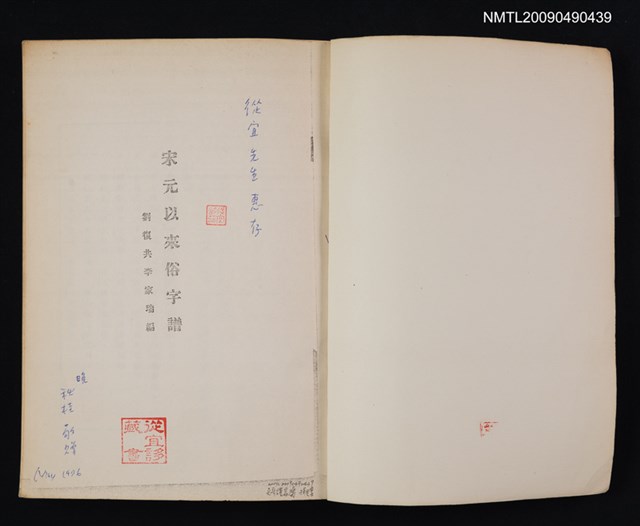 NMTL20090490439
從宜先生惠存
宋元以來俗字譜
劉復共李家瑞編
敬贈
May 1976
從宜誃
藏書